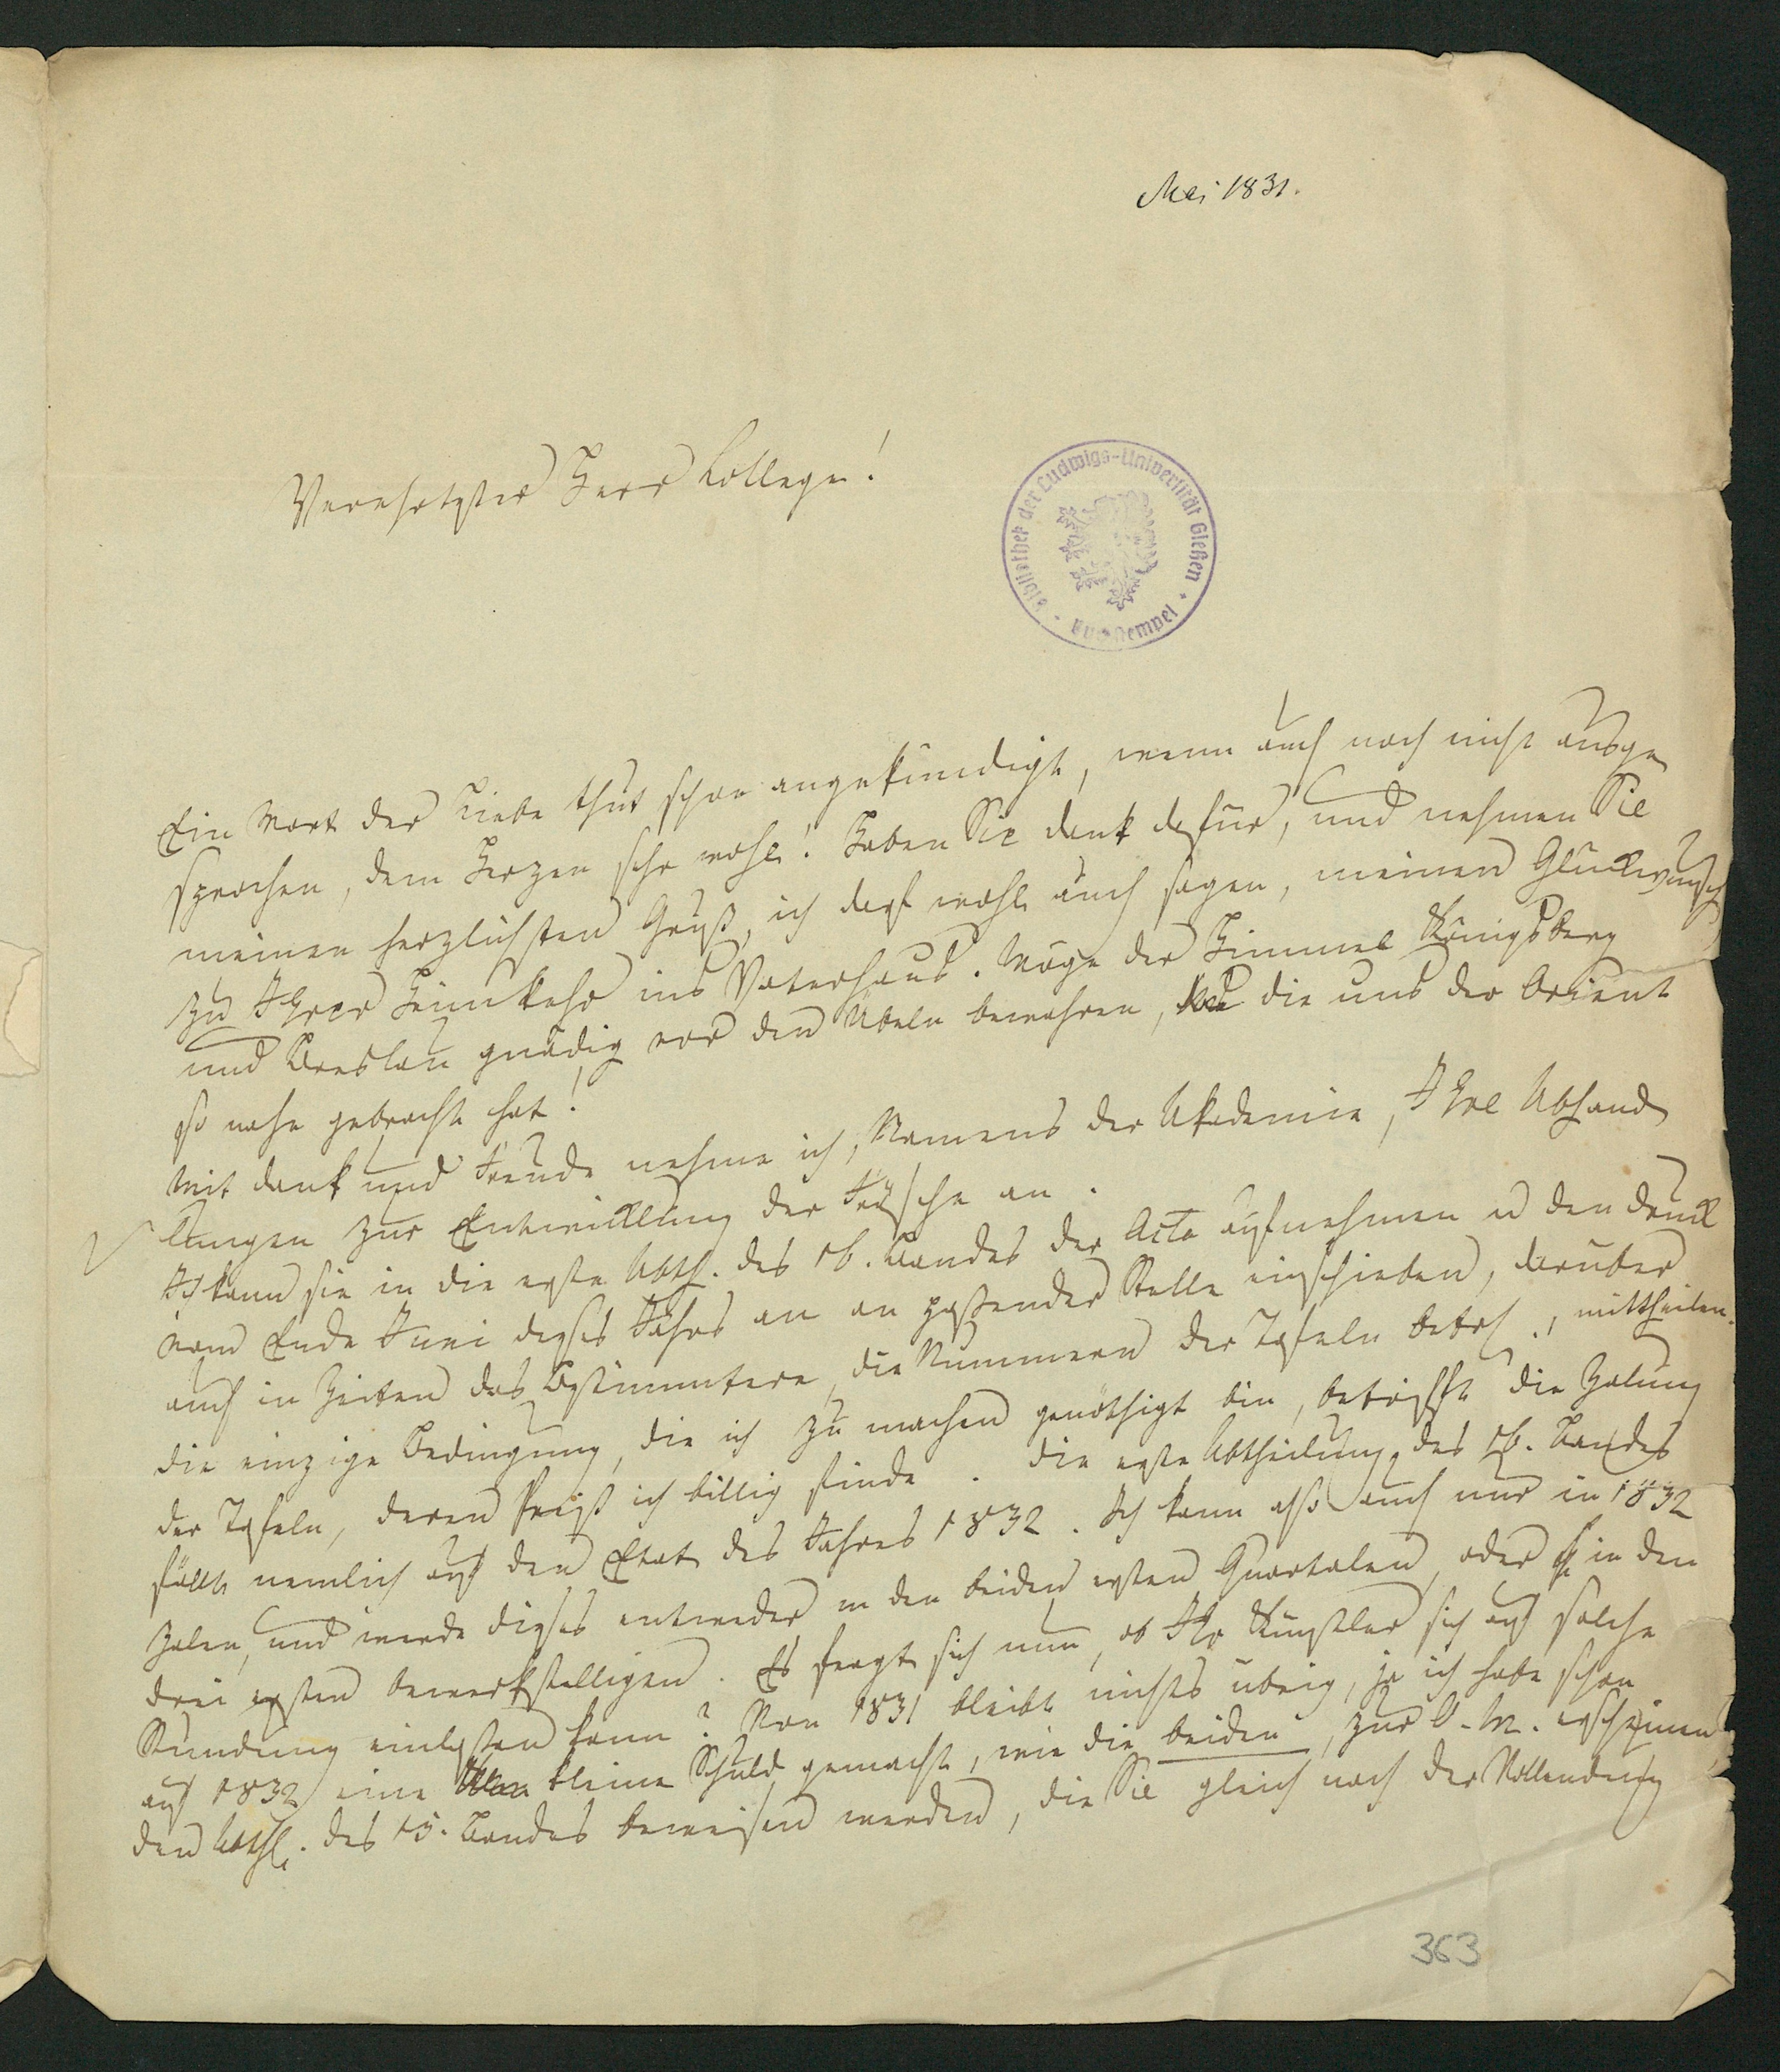 Mai 1831.
Verehrtester Herr College!
Bibliothek der Ludwigs-Universität Gießen
Buchstempel
Ein Wort der Liebe thut schon angekündigt, wenn auch noch nicht ausge
sprochen, dem Herzen sehr wohl! Haben Sie Dank dafür, und nehmen Sie
meinen herzlichsten Gruß, ich darf wohl auch sagen, meinen Glückwunsch
zu Ihrer Heimkehr ins Vaterhaus. Möge der Himmel Königsberg
und Breslau gnädig vor den Übeln bewahren, die uns der Orient
so nahe gebracht hat!
Mit Dank und Freude nehme ich, Namens der Akademie, Ihre Abhand
lungen zur Entwicklung der Frösche an.
Ich kann sie in die erste Abth. des 16. Bandes der Acta aufnehmen u den Druck
vom Ende Juni dieses Jahrs an an passender Stelle einschieben, darüber
auch in Zeiten das Bestimmtere, die Nummern der Tafeln betref., mittheilen.
Die einzige Bedingung, die ich zu machen genöthigt bin, betrifft die Zalung
der Tafeln, deren Preiß ich billig finde. Die erste Abtheilung des 16. Bandes
fällt nemlich auf den Etat des Jahres 1832. Ich kann also auch nur in 1832
zalen, und werde dieses entweder in den beiden ersten Quartalen, oder in den
drei ersten bewerkstelligen. Es fragt sich nun, ob Ihr Künstler sich auf solche
Stundung einlassen kann? Von 1831 bleibt nichts übrig, ja ich habe schon
auf 1832 eine kleine Schuld gemacht, wie die beiden, zur O. M. erscheinen
den Abthl. des 15. Bandes beweisen werden, die Sie gleich nach der Vollendung
363